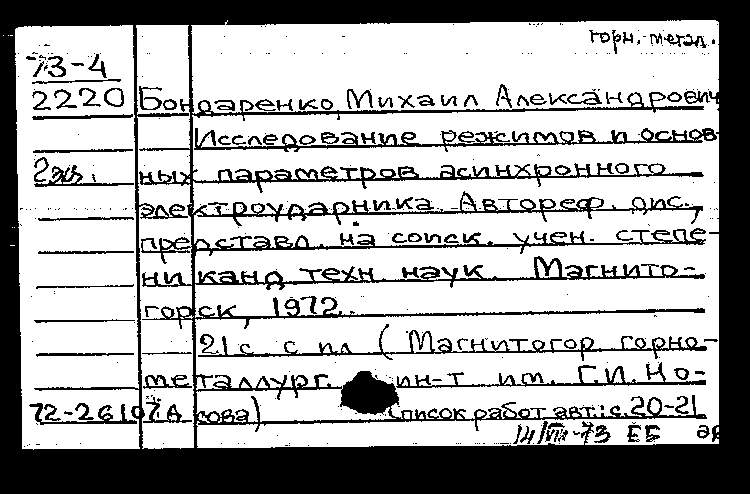 горн. метал.
73-4
2220 Бондаренко, Михаил Александрович
Исследование режимов и основ-
2 экз. ных параметров асинхронного
электроударника. Автореф. дис.,
представл. на соиск. учен. степе-
ни канд. техн. наук. Магнито-
горск, 1972.
21 с. с ил. (Магнитогор. горно-
металлург. ин-т им. Г.И. Но-
72-26107А сова) Список работ авт.: с. 20-21
14/VIII-73 ЕБ